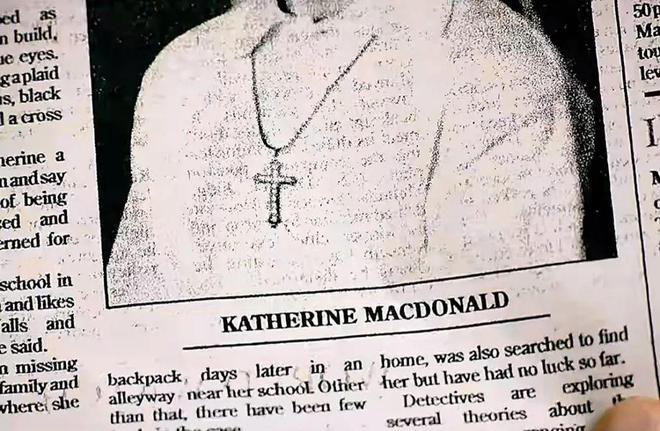 ed as
n build,
ue eyes.
g a plaid
s, black
l a cross
herine a
n and say
of being
ed and
erned for
school in
and likes
alls and
e said.
n missing
family and
where she
KATHERINE MACDONALD
backpack, days later in an
alleyway near her school. Other
than that, there have been few
the case
home, was also searched to find
her but have had no luck so far.
Detectives are exploring
several theories about
50p
Ma
tou
lev